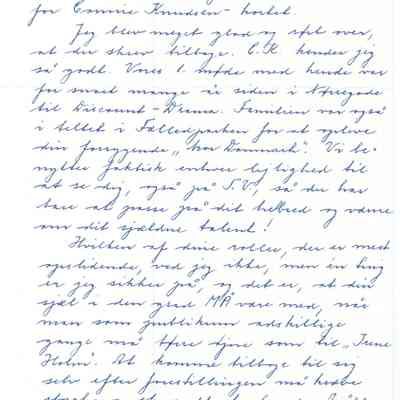 for Connie Knudsen-kortet.
Jeg blev meget glad og rørt over,
at du skrev tilbage. C.K. kender jeg
så godt. Vores 1. møde med hende var
for snart mange år siden i Nørregade
til Discount-Drama. Familien var også
i teltet i Fælledparken for at opleve
din forrygende "kær Danmark". Vi be-
nytter faktisk enhver lejlighed til
at se dig, også på T.V., så du har
bare at passe på dit helbred og værne
om dit sjældne talent!
Hvilken af dine roller, der er mest
opslidende, ved jeg ikke, men én ting
er jeg sikker på, og det er, at din
sjæl i den grad MÅ være med, når
man som publikum adskillige
gange må tørre øjne som til "Irene
Holm". At komme tilbage til sig
selv efter forestillingen må kræve